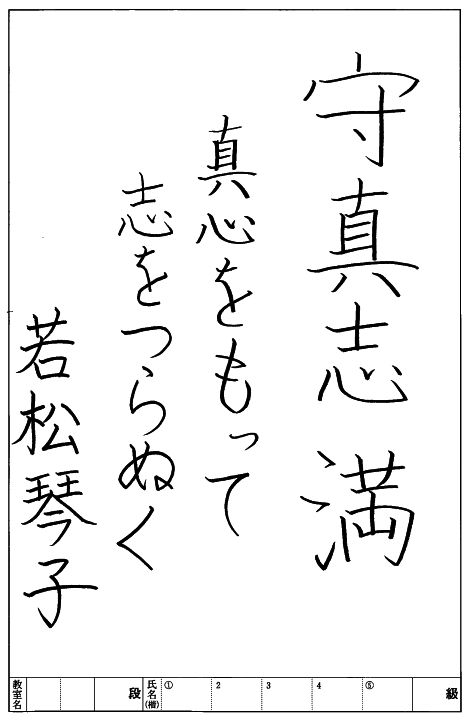 守真志満
真心をもって
志をつらぬく
若松琴子
教室名 段 氏名(楷) ① 2 3 4 ⑤ 級